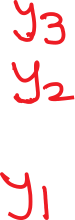 y3
y2
y1